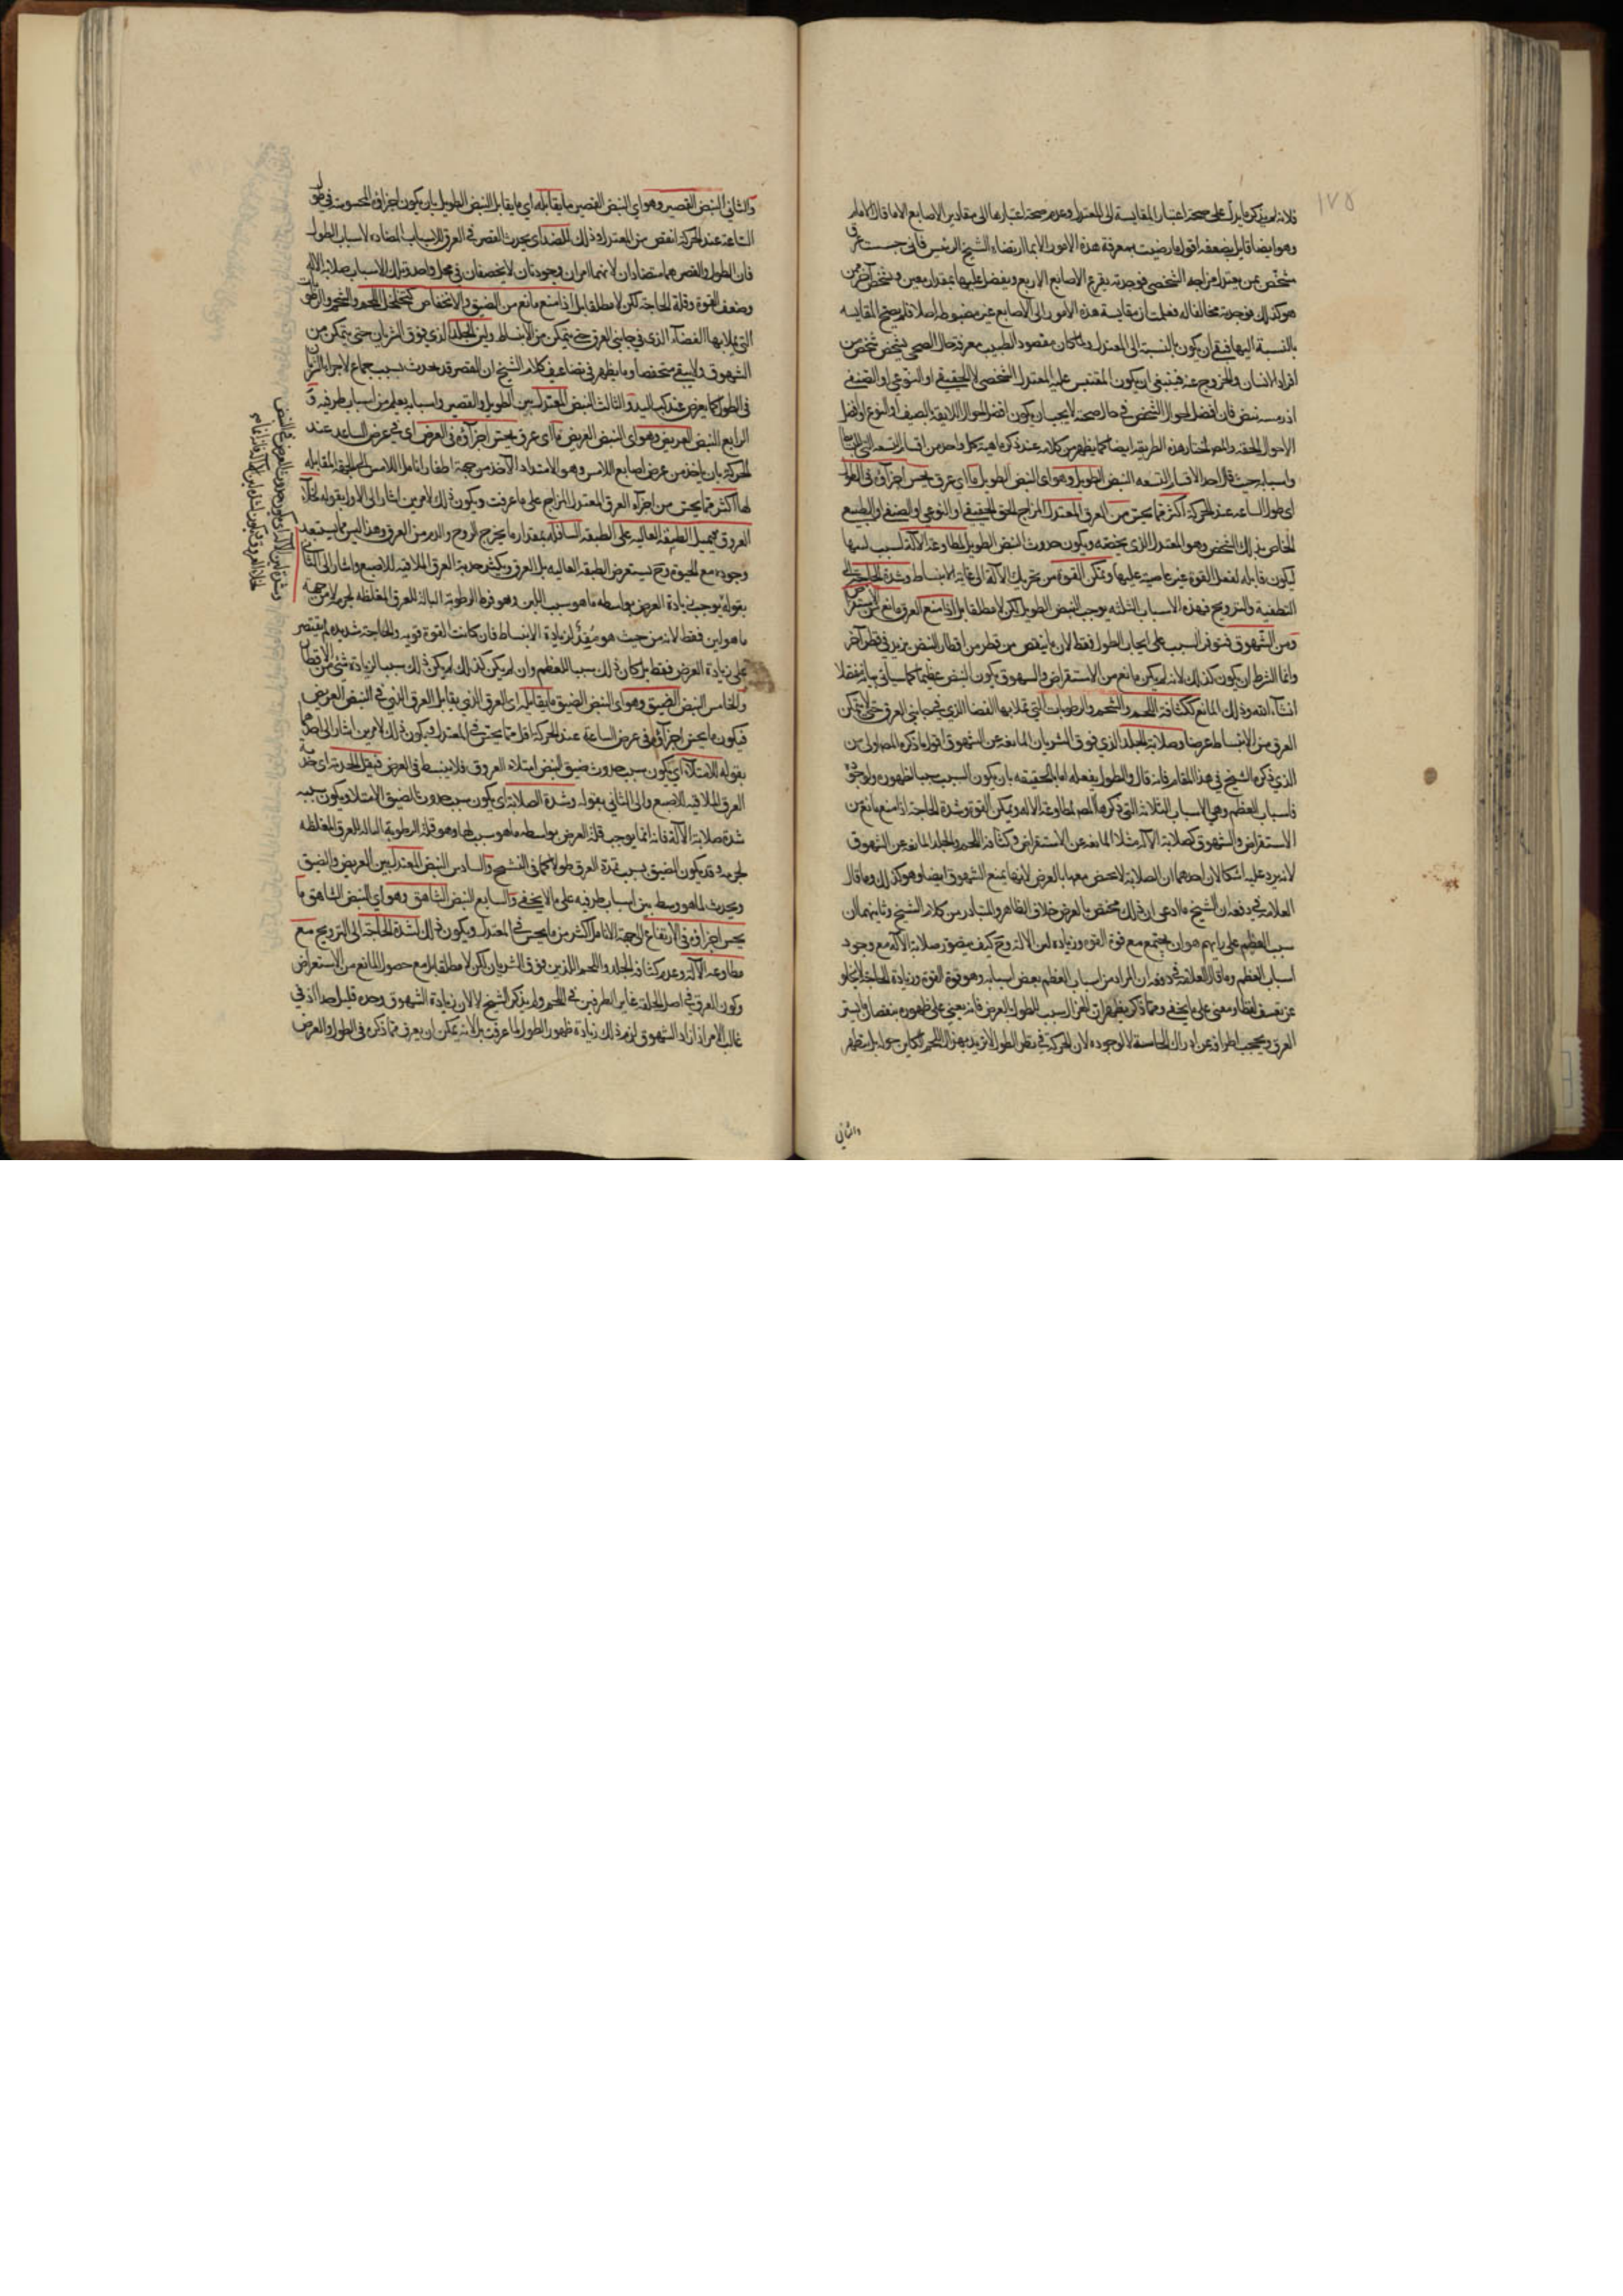 ١٧٥
فلانه لم يذكر ما يدل على صحة اعتبار المقايسة الى المعتدل وعدم صحة اعتبارها الى مقادير الاصابع الا ما قال الامام
وهو ايضا قابل بضعفه اقول ما رضيت بمعرفة هذه الامور الا بما ارتضاه الشيخ الرئيس فانى جسست عرق
شخص ممن يعتدل مزاجه الشخصى فوجدته يقرع الاصابع الاربع ويفضل عليها بمقدار معين وشخص آخر ممن
هو كذلك فوجدته مخالفا له فعلمت ان مقايسة هذه الامور الى الاصابع غير مضبوطه اصلا فلم يصح المقايسه
بالنسبة اليها فبقى ان يكون بالنسبة الى المعتدل ولما كان مقصود الطبيب معرفة حال الصحى بشخص شخص من
افراد الانسان والخروج عنه فينبغى ان يكون المقتبس عليه المعتدل الشخصى لا الحقيقى او النوعى او الصنفى
اذ رب نبض فان افضل احوال الشخص فى حال صحته لا يجب ان يكون افضل احوال اللايقة بالصنف او النوع او افضل
الاحوال الحقه والمص اختار هذه الطريقه ايضا كما يظهر من كلامه عند ذكر ماهية كل واحد من اقسام التسعه
واسبابه حيث قال احد الاقسام التسعه النبض الطويل وهو اى النبض الطويل ما اى عرق يحس اجزاؤه فى الطول
اى طول الساعد عند الحركة اكثر مما يحس من العرق المعتدل المزاج الحق الحقيقى او النوعى او الصنفى او الطبيعى
الخاص بذلك الشخص وهو المعتدل الذى يخصه ويكون حدوث النبض الطويل لمطاوعة الآلة بسبب لينها
ليكون قابله لفعل القوة غير عاصية عليها وتمكن القوة من تحريك الآلة الى غاية الانبساط وشدة الحاجة الى
التطفية والترويح فهذه الاسباب الثلثه يوجب النبض الطويل لكن لا مطلقا بل اذا منع العرق مانع عن الاستعراض
ومن الشهوق فتوفر السبب على ايجاب الطول فقط لان ما ينقص من قطر من اقطار النبض يزيد فى قطر آخر
وانما اشترط ان يكون كذلك لانه لو لم يكن مانع من الاستعراض والشهوق يكون النبض عظيما كما سيأتى بيانه مفصلا
انشآء الله وذلك المانع ككثافة اللحم والشحم والرطوبات التى تملأ بها الفضا الذى فى جانبى العرق حتى لا يتمكن
العرق من الانبساط عرضا وصلابة الجلد الذى فوق الشريان المانعة عن الشهوق اقول ما ذكره المص اولى من
الذى ذكره الشيخ فى هذا المقام فانه قال والطول يفعله اما بالحقيقه بان يكون السبب سببا لظهوره ولوجوده
فاسباب العظم وهى الاسباب الثلاثة التى ذكرها المص لمطاوعة الاله وتمكن القوة وشدة الحاجة اذا منع مانع من
الاستعراض والشهوق كصلابة الآله مثلا المانعه عن الاستعراض وكثافة اللحم والجلد المانعه عن الشهوق
لانه يرد عليه اشكالان احدهما ان الصلابة لا يختص منعها بالعرض لانها يمنع الشهوق ايضا وهو كذلك وما قال
العلامه فى دفعه ان الشيخ ما ادعى ان ذلك مختص بالعرض خلاف الظاهر والمتبادر من كلام الشيخ وثانيهما ان
سبب العظم على رايهم هو ان يجتمع مع قوة القوه وزيادة لين الآلة وح كيف يتصور صلابة الآله مع وجود
اسباب العظم وما قال العلامة فى دفعه ان المراد من اسباب العظم بعض اسبابه وهو قوة القوه وزيادة الحاجة لا يخلو
عن تعسف لفظا ومعنى على ما يخفى ومما ذكر يظهر ان الهزال سبب للطول والعرض فانه يعين على ظهوره بنقصان ما يستر
العرق ويحجب اطرافه عن ادراك الحاسة لا لوجوده لان الحركة فى نظر الطول لا تزيد بهزال اللحم الكاين حوله بل يظهر
والثانى
والثانى النبض القصير وهو اى النبض القصير ما يقابله اى ما يقابل النبض الطويل بان يكون اجزاؤه المحسوسة فى طول
الساعد عند الحركة انقص من المعتدل وذلك للضد اى يحدث القصر فى العرق للاسباب المضاده لاسباب الطول
فان الطول والقصر هما متضادان لانهما امران وجوديان لا يجتمعان فى محل واحد وتلك الاسباب صلابة الآلة
وضعف القوة وقلة الحاجة لكن لا مطلقا بل اذا منع مانع من الضيق والانخفاض كتخلخل اللحم والشحم والرطوبات
التى يملأ بها الفضآء الذى فى جانبى العرق حتى يتمكن من الانبساط ولين الجلد الذى فوق الشريان حتى يتمكن من
الشهوق ولا يبقى منخفضا وما يظهر من تضاعيف كلام الشيخ ان القصر قد يحدث بسبب جماع لاجزاء الشريان
فى الطول كما يعرض عند كب اليد والثالث النبض المعتدل بين الطويل والقصير واسبابه يعلم من اسباب طرفيه و
الرابع النبض العريض وهو اى النبض العريض ما اى عرق يحس اجزآؤه فى العرض اى فى عرض الساعد عند
الحركة بان ياخذ من عرض اصابع اللامس وهو الامتداد الآخذ من جهة اظفار انامل اللامس الى الجهة المقابله
لها اكثر مما يحس من اجزآء العرق المعتدل المزاج على ما عرفت ويكون ذلك لامرين اشار الى الاول بقوله لخلآء
العروق فيميل الطبقه العاليه على الطبقه السافله بمقدار ما يخرج الروح والدم من العرق وهذا ليس مما يستبعد
وجوده مع الحيوة وح يستعرض الطبقه العاليه من العرق ويكثر حدبة العرق الملاقيه للاصبع واشار الى الثانى
بقوله يوجب زيادة العرض بواسطه ما هو سبب اللين وهو فرط الرطوبة البالة للعرق المغلظه لجرمه لا من جهة
ما هو لين فقط لانه من حيث هو مفيد لزيادة الانبساط فان كانت القوة قويه والحاجة شديده لم يقتصر
على زيادة العرض فقط بل كان ذلك سببا للعظم وان لم يكن كذلك لم يكن ذلك سبب الزيادة شئ من الاقطار
والخامس النبض الضيق وهو اى النبض الضيق ما يقابله اى العرق الذى يقابل العرق الذى فى النبض العريض
فيكون ما يحس اجزآؤه فى عرض الساعد عند الحركة اقل مما يحس فى المعتدل ويكون ذلك لامرين اشار الى احدهما
بقوله للامتلآء اى يكون سبب حدوث ضيق النبض امتلاء العروق فلا ينبسط فى العرض فيقل الحدبة اى حدبة
العرق الملاقيه للاصبع والى الثانى بقوله وشدة الصلابة اى يكون سبب حدوث الضيق الامتلاء ويكون سببه
شدة صلابة الآلة فانه انما يوجب قلة العرض بواسطه ما هو سبب لها وهو قلة الرطوبة الباله للعرق المغلظه
لجرمه وقد يكون الضيق بسبب تمدد العرق طولا كما فى التشنج والسادس النبض المعتدل بين العريض والضيق
ويحدث لما هو وسط بين اسباب طرفيه على ما لا يخفى والسابع النبض الشاهق وهو اى النبض الشاهق ما
يحس اجزاؤه فى الارتفاع الى جهة الانامل اكثر من ما يحس فى المعتدل ويكون ذلك لشدة الحاجة الى الترويح مع
مطاوعة الآلة وعدم كثافة الجلد واللحم اللذين فوق الشريان لكن لا مطلقا بل مع حصول المانع من الاستعراض
وكون العرق فى اصل الخلقة غاير الطرفين فى اللحم ولم يذكر الشيخ لان زيادة الشهوق وحده قليل جدا اذ فى
غالب الامر اذا زاد الشهوق لزم ذلك زيادة ظهور الطول لما عرفت بل لانه يمكن ان يعرف مما ذكره فى الطول والعرض